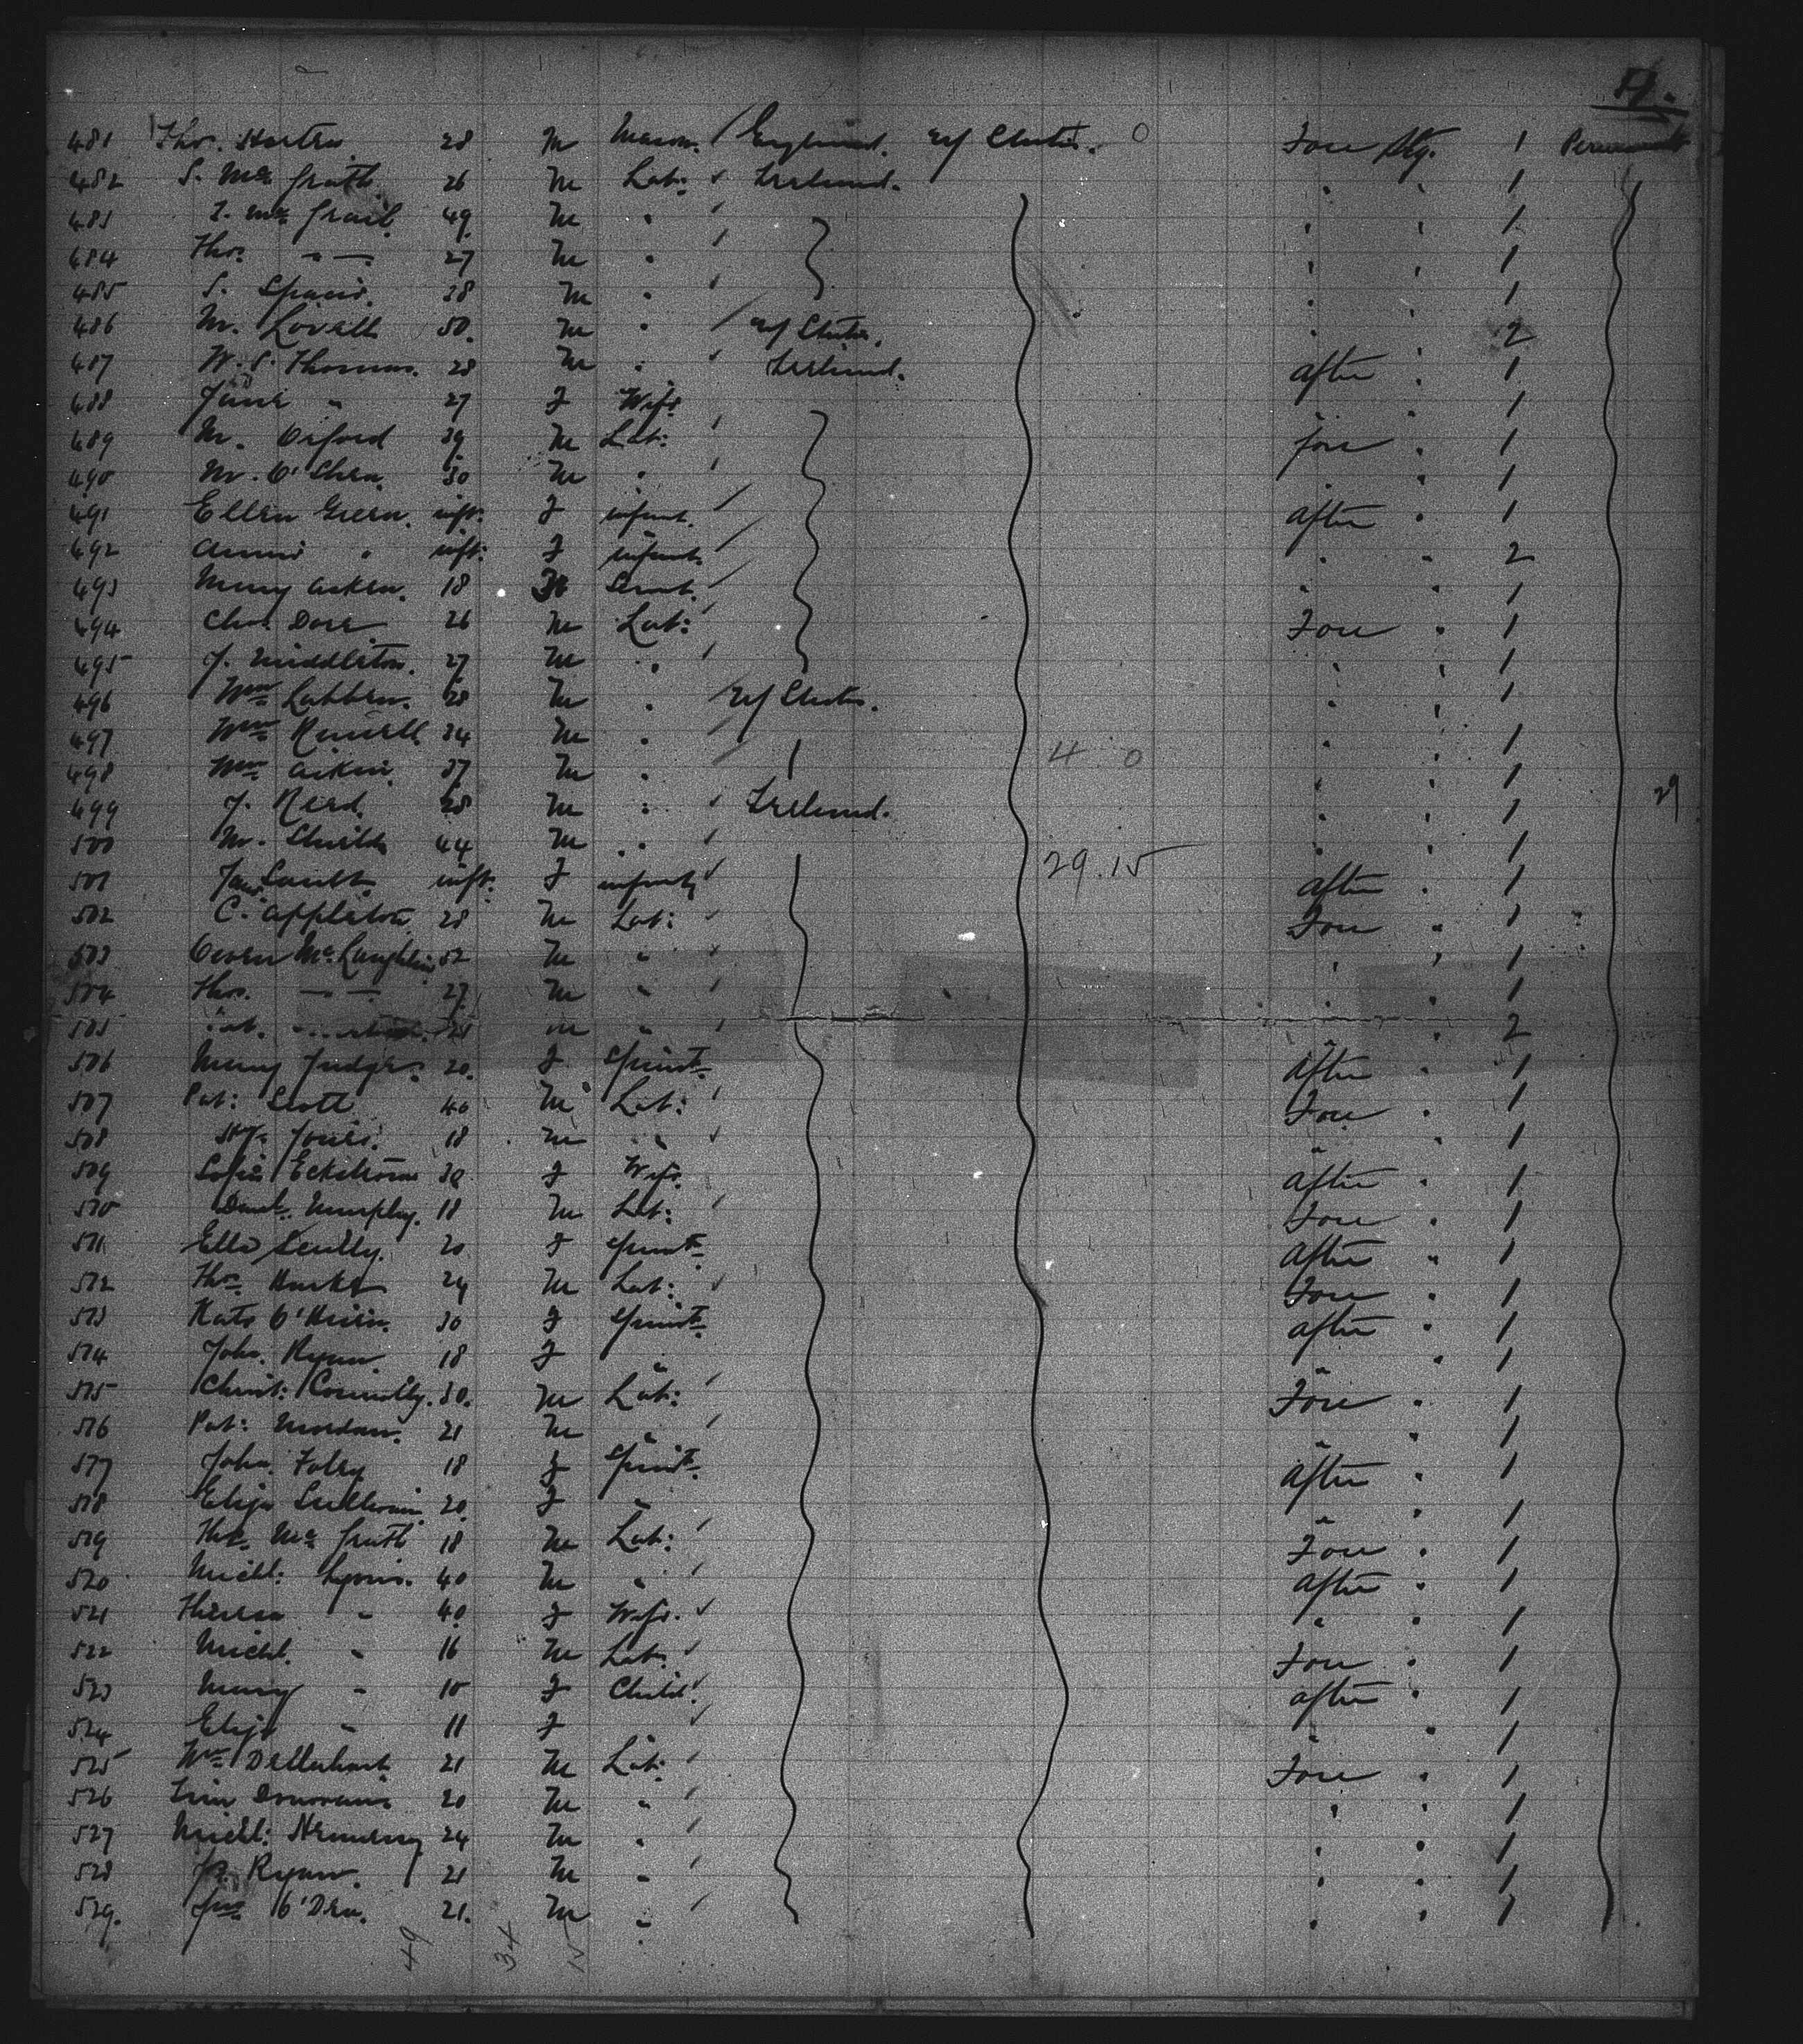 481 Thos. 28 M Mason. England. U/ States. 0 Fore Stg. 1 Permanent
482 S. Mc Grath 26 M Lab: Ireland. " " 1
483 49 M " " " 1
484 Thos. " — 27 M " " " 1
485 S. 28 M " " " 1
486 M. Lovell 50. M " U/ States. " " 2
487 W. S. Thomas. 28 M " Ireland. After " 1
488 Jane " 27 F Wife " " 1
489 M. Orford 39 M Lab: fore " 1
490 M. O'Shea. 30 M " " " 1
491 Ellen Green. inft. F infant. After " 1
492 Annie " inft: F infant. " " 2
493 Mary Aiken. 18 F Servt. " " 1
494 Chas. Dore 26 M Lab: Fore " 1
495 J. Middleton. 27 M " " " 1
496 Wm 28 M " U/ States. " " 1
497 Wm 34 M " " " 1
498 Wm Aiken. 37 M " 4 0 " " 1
499 J. Reed. 28 M " Ireland. " " 1 29
500 M. 44 M " " " 1
501 inft. F infant 29.15 After " 1
502 C. Appleton 28 M Lab: Fore " 1
503 Owen McLaughlin 52 M " " " 1
504 Thos. — — 27 M " " " 1
505 M " " 2
506 Mary Judge. 20. F Spinst. After " 1
507 Pat: Scott 40 M Lab: Fore " 1
508 Hy. Jones. 18 M " " " 1
509 Sofia Eckstrom 30 F Wife After " 1
510 Danl. Murphy. 18 M Lab: Fore " 1
511 Ella Scully. 20 F Spinst. After " 1
512 Thos. 24 M Lab: Fore " 1
513 Kate O'Brien. 30 F Spinst. After " 1
514 Joha. Ryan. 18 F " " 1
515 Christ: Connolly. 30. M Lab: Fore " 1
516 Pat: 21 M " " " 1
517 Joha. Foley 18 F Spinst. After " 1
518 Eliza Sullivan 20. F " " " 1
519 Thos. Mc Grath 18 M Lab: Fore " 1
520 Michl: Lyons. 40 M " After " 1
521 Theresa " 40 F Wife. " " 1
522 Michl. " 16 M Lab. Fore " 1
523 Mary " 10 F Child. After " 1
524 Eliza " 11 F " " 1
525 Wm 21 M Lab: Fore " 1
526 Donovan 20 M " " " 1
527 Michl: Hennessy 24 M " " " 1
528 Ryan. 21 M " " " 1
529. O'Dea. 21. M " " " 1
49 34 15